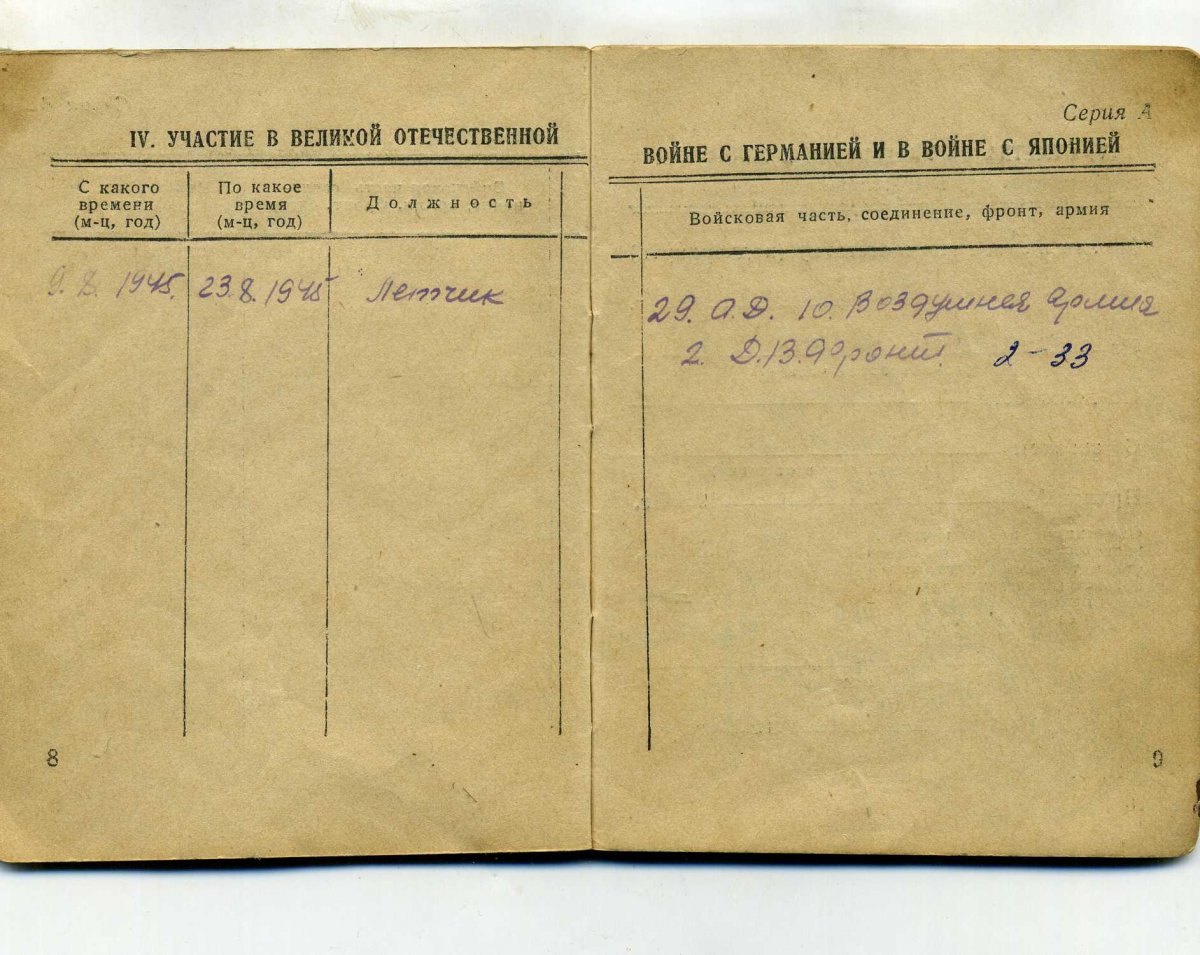 IV. УЧАСТИЕ В ВЕЛИКОЙ ОТЕЧЕСТВЕННОЙ
С какого времени (м-ц, год)
По какое время (м-ц, год)
Должность
9.8.1945.
23.8.1945
Летчик
8
Серия А
ВОЙНЕ С ГЕРМАНИЕЙ И В ВОЙНЕ С ЯПОНИЕЙ
Войсковая часть, соединение, фронт, армия
29. А.Д. 10. Воздушная армия
2. Д.В.Фронт. 2-33
9